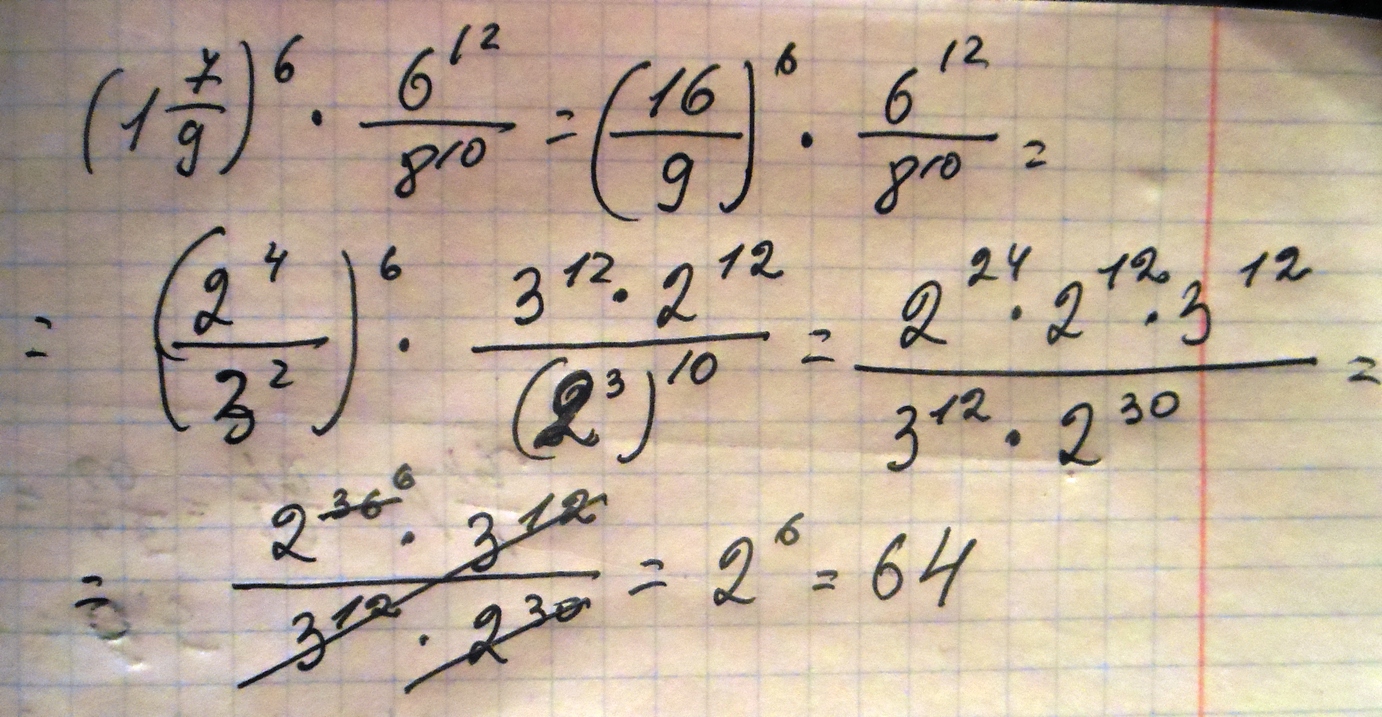 (1 7/9)^6 · 6^12/8^10 = (16/9)^6 · 6^12/8^10 =
= (2^4/3^2)^6 · (3^12 · 2^12)/(2^3)^10 = (2^24 · 2^12 · 3^12)/(3^12 · 2^30) =
= (2^36 6 · 3^12)/(3^12 · 2^30) = 2^6 = 64